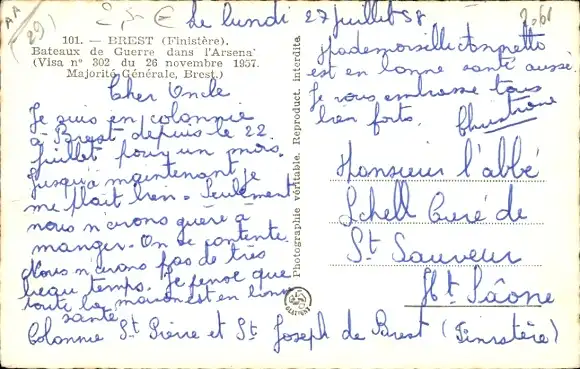 le lundi 27 Juillet 58
101. — BREST (Finistère).
Bateaux de Guerre dans l'Arsenal
(Visa n° 302 du 26 novembre 1957.
Majorité Générale, Brest.)
Cher Oncle
Je suis en colonie
à Brest depuis le 22
Juillet pour un mois.
Jusqu'à maintenant je
me plait bien. Seulement
nous n'avons guère à
manger. On se contente.
Nous n'avons pas de très
beau temps. Je pense que
toute la maison est en bonne
santé.
Mademoiselle
est en bonne santé aussi.
Je vous embrasse tous
bien forts.
Christiane
Photographie véritable. Reproduct. interdite.
Monsieur l'abbé
Schell Curé de
St Sauveur
Hte Sâone
Colonie St Pierre et St Joseph de Brest (Finistère)